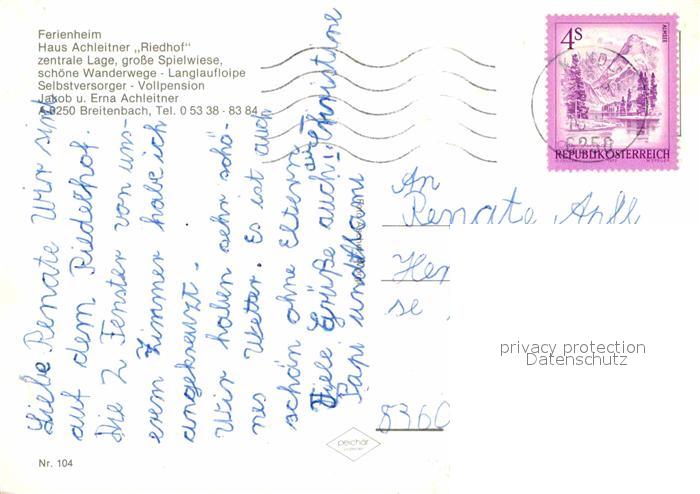 Ferienheim
Haus Achleitner „Riedhof"
zentrale Lage, große Spielwiese,
schöne Wanderwege - Langlaufloipe
Selbstversorger - Vollpension
Jakob u. Erna Achleitner
A-6250 Breitenbach, Tel. 0 53 38 - 83 84
Liebe Renate Wir sind
auf dem Riederhof.
Die 2 Fenster von uns-
erem Zimmer habe ich
angekreuzt.
Wir haben sehr schö-
nes Wetter. Es ist auch
schön ohne Eltern!
Viele Grüße auch die Christine
Papi und Mami
4s
ALMSEE
REPUBLIK ÖSTERREICH
6250
An
Renate
se
8360
privacy protection
Datenschutz
peichär
Nr. 104